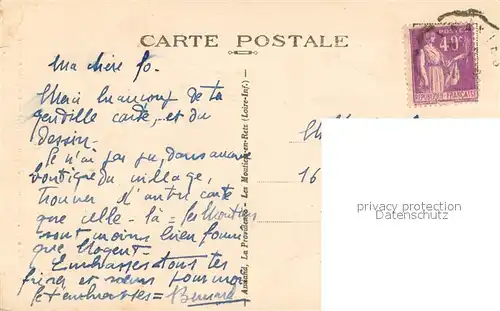 CARTE POSTALE
Ma chère Jo.
Merci beaucoup de ta
gentille carte, et du
dessin.
Je n'ai pas pu, dans aucune
boutique du village,
trouver d'autre carte
que celle-là = les Moutiers
sont moins bien fournis
que Nogent =
Embrasses tous tes
frères et sœurs pour moi
Je t'embrasse = Bernard
Armand, La Providence - Les Moutiers-en-Retz (Loire-Inf.)
POSTES
40c
REPUBLIQUE FRANÇAISE
16
privacy protection
Datenschutz